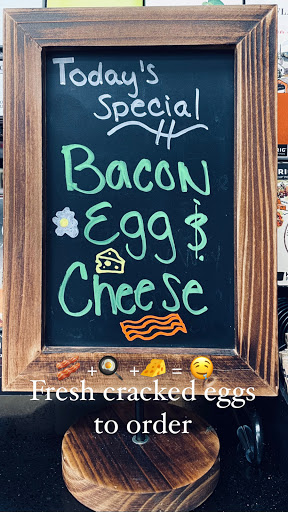 Today's
Special
Bacon
Egg &
Cheese
🥓 + 🍳 + 🧀 = 🤤
Fresh cracked eggs
to order